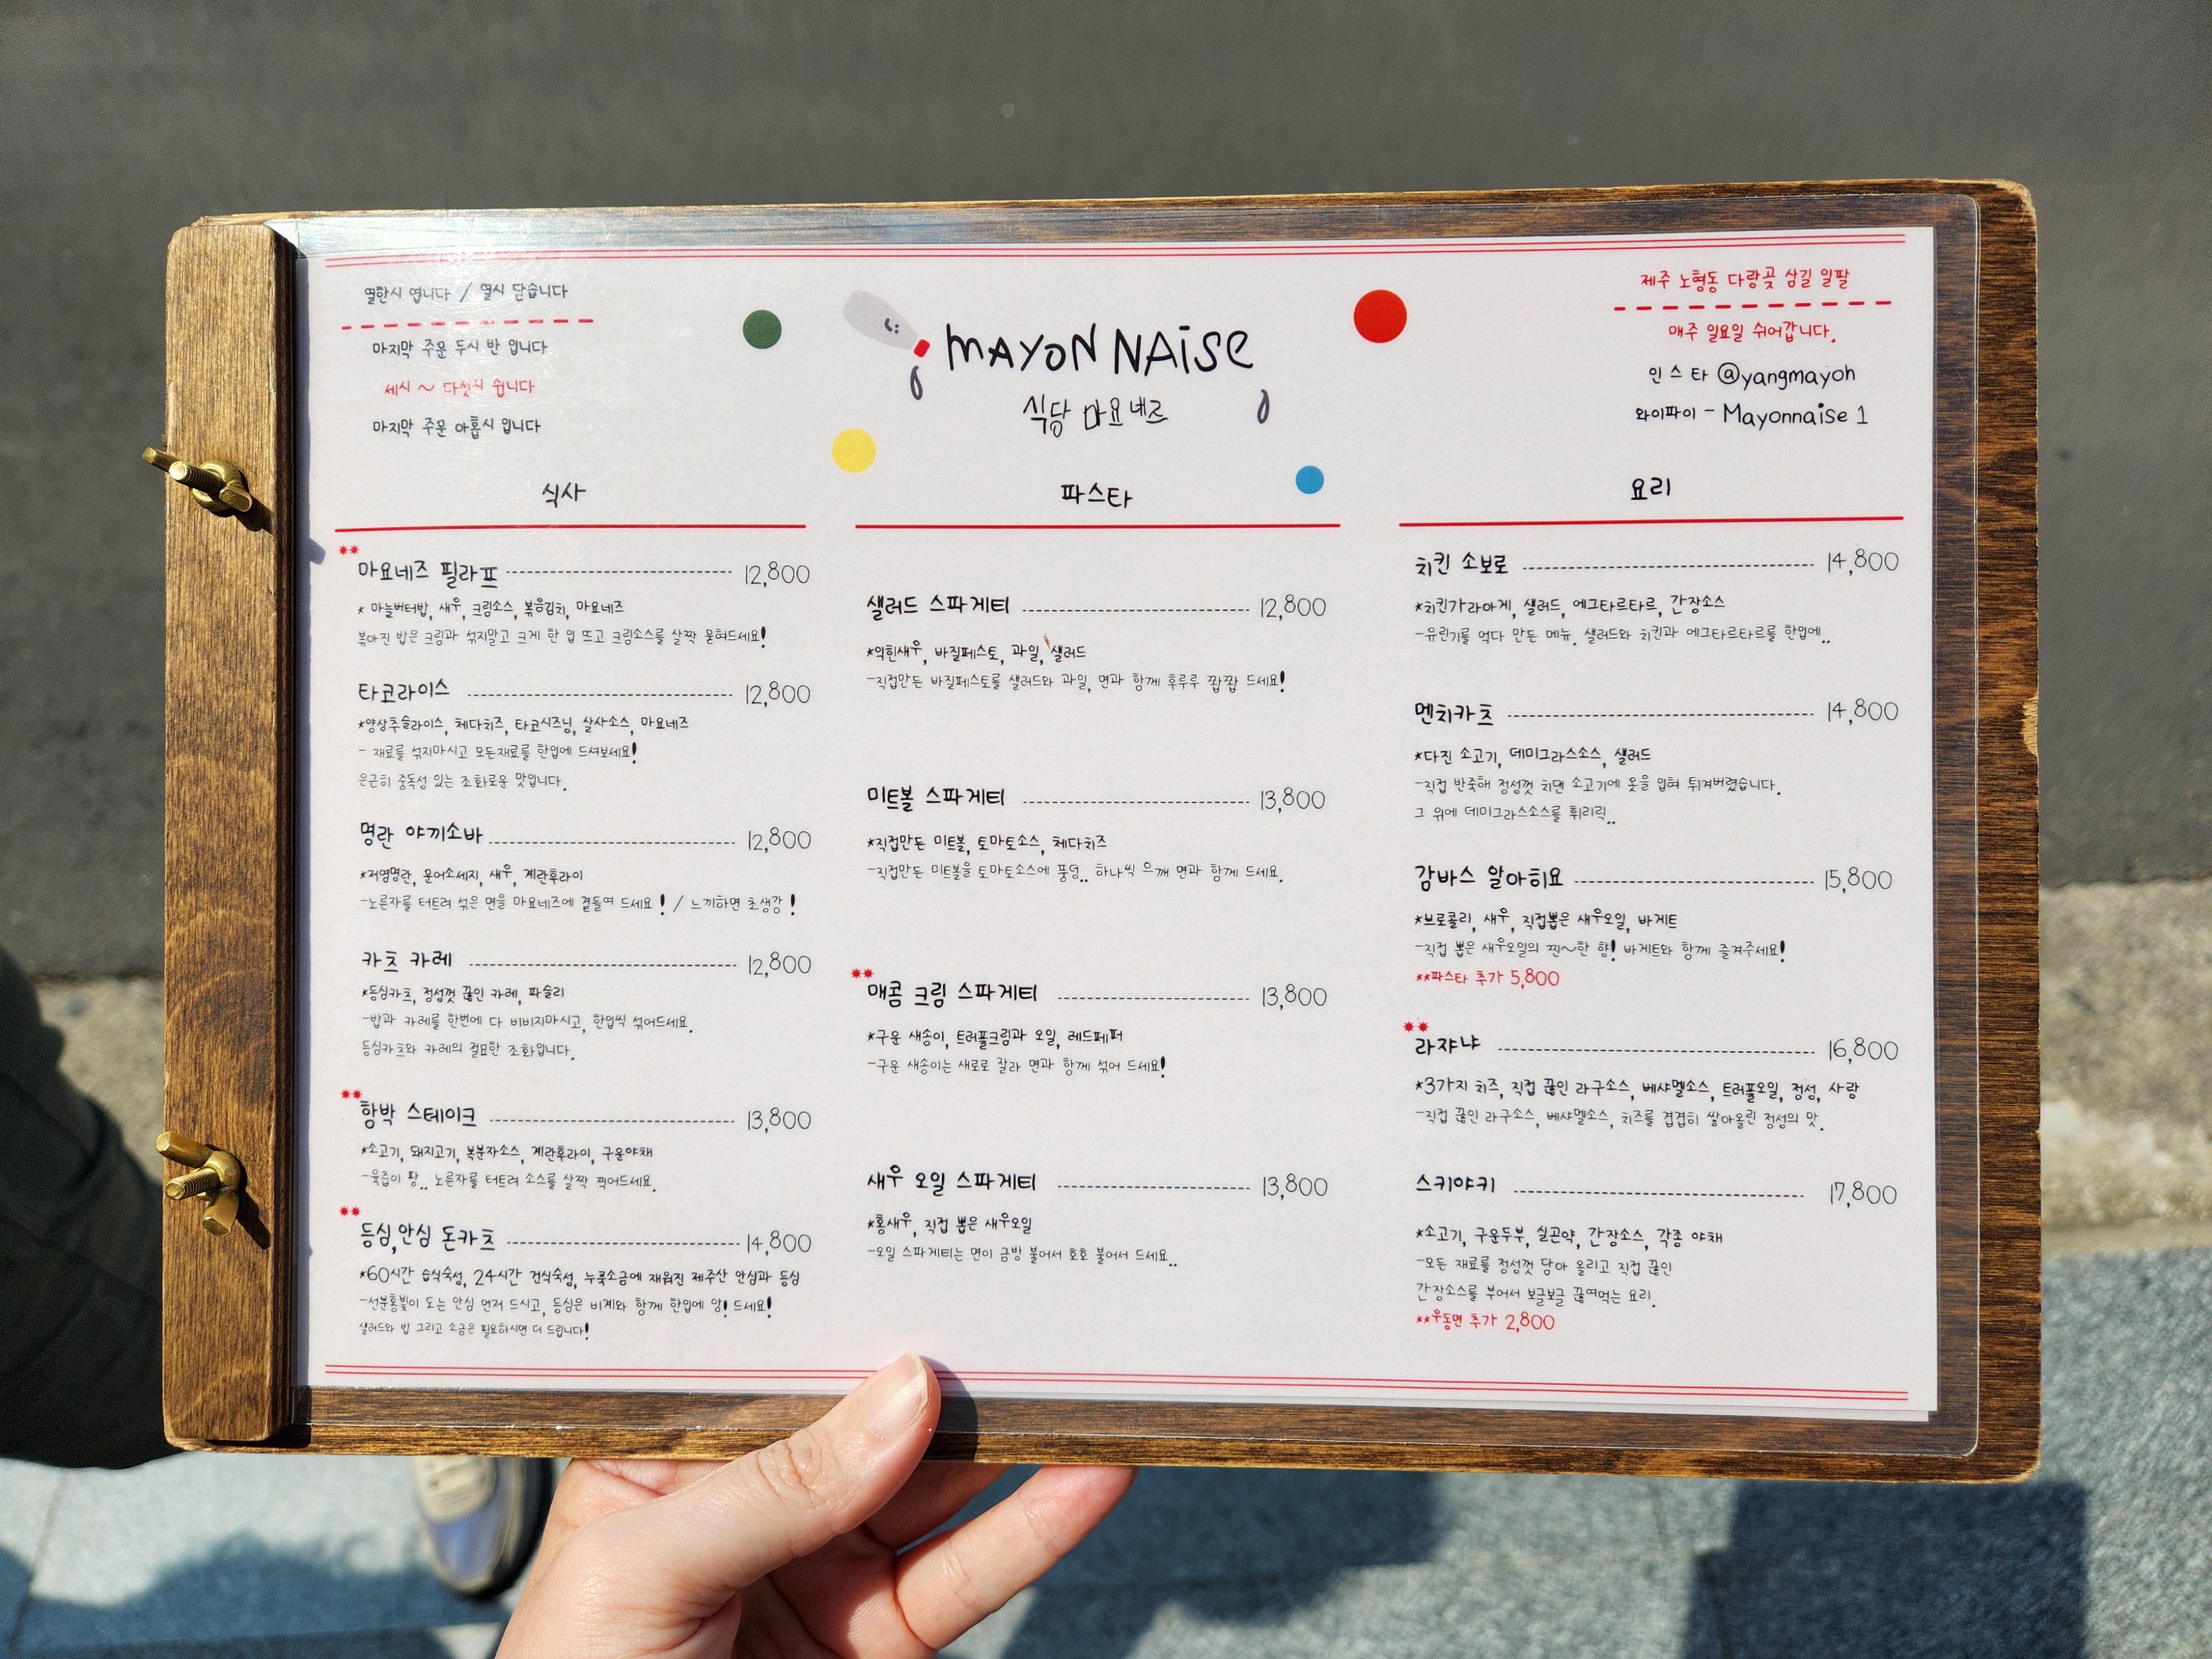 열한시 엽니다 / 열시 닫습니다
마지막 주문 두시 반 입니다
세시 ~ 다섯시 쉽니다
마지막 주문 아홉시 입니다
MAYONNAISE
식당 마요네즈
제주 노형동 다랑곶 삼길 일팔
매주 일요일 쉬어갑니다.
인스타 @yangmayoh
와이파이 - Mayonnaise 1
식사
**
마요네즈 필라프 12,800
* 마늘버터밥, 새우, 크림소스, 볶음김치, 마요네즈
볶아진 밥은 크림과 섞지말고 크게 한 입 뜨고 크림소스를 살짝 묻혀드세요!
타코라이스 12,800
*양상추슬라이스, 체다치즈, 타코시즈닝, 살사소스, 마요네즈
- 재료를 섞지마시고 모든재료를 한입에 드셔보세요!
은근히 중독성 있는 조화로운 맛입니다.
명란 야끼소바 12,800
*저염명란, 문어소세지, 새우, 계란후라이
-노른자를 터트려 섞은 면을 마요네즈에 곁들여 드세요! / 느끼하면 초생강!
카츠 카레 12,800
*등심카츠, 정성껏 끓인 카레, 파슬리
-밥과 카레를 한번에 다 비비지마시고, 한입씩 섞어드세요.
등심카츠와 카레의 절묘한 조화입니다.
**
함박 스테이크 13,800
*소고기, 돼지고기, 복분자소스, 계란후라이, 구운야채
-육즙이 팡.. 노른자를 터트려 소스를 살짝 찍어드세요.
**
등심,안심 돈카츠 14,800
*60시간 습식숙성, 24시간 건식숙성, 누룩소금에 재워진 제주산 안심과 등심
-선분홍빛이 도는 안심 먼저 드시고, 등심은 비계와 함께 한입에 앙! 드세요!
샐러드와 밥 그리고 소금은 필요하시면 더 드립니다!
파스타
샐러드 스파게티 12,800
*익힌새우, 바질페스토, 과일, 샐러드
-직접만든 바질페스토를 샐러드와 과일, 면과 함께 후루루 짭짭 드세요!
미트볼 스파게티 13,800
*직접만든 미트볼, 토마토소스, 체다치즈
-직접만든 미트볼을 토마토소스에 풍덩.. 하나씩 으깨 면과 함께 드세요.
**
매콤 크림 스파게티 13,800
*구운 새송이, 트러플크림과 오일, 레드페퍼
-구운 새송이는 새로로 잘라 면과 함께 섞어 드세요!
새우 오일 스파게티 13,800
*홍새우, 직접 뽑은 새우오일
-오일 스파게티는 면이 금방 불어서 호호 불어서 드세요..
요리
치킨 소보로 14,800
*치킨가라아게, 샐러드, 에그타르타르, 간장소스
-유린기를 먹다 만든 메뉴. 샐러드와 치킨과 에그타르타르를 한입에..
멘치카츠 14,800
*다진 소고기, 데미그라스소스, 샐러드
-직접 반죽해 정성껏 치댄 소고기에 옷을 입혀 튀겨버렸습니다.
그 위에 데미그라스소스를 휘리릭..
감바스 알아히요 15,800
*브로콜리, 새우, 직접뽑은 새우오일, 바게트
-직접 뽑은 새우오일의 찐~한 향! 바게트와 함께 즐겨주세요!
**파스타 추가 5,800
**
라쟈냐 16,800
*3가지 치즈, 직접 끓인 라구소스, 베샤멜소스, 트러플오일, 정성, 사랑
-직접 끓인 라구소스, 베샤멜소스, 치즈를 겹겹히 쌓아올린 정성의 맛.
스키야키 17,800
*소고기, 구운두부, 실곤약, 간장소스, 각종 야채
-모든 재료를 정성껏 담아 올리고 직접 끓인
간장소스를 부어서 보글보글 끓여먹는 요리.
**우동면 추가 2,800